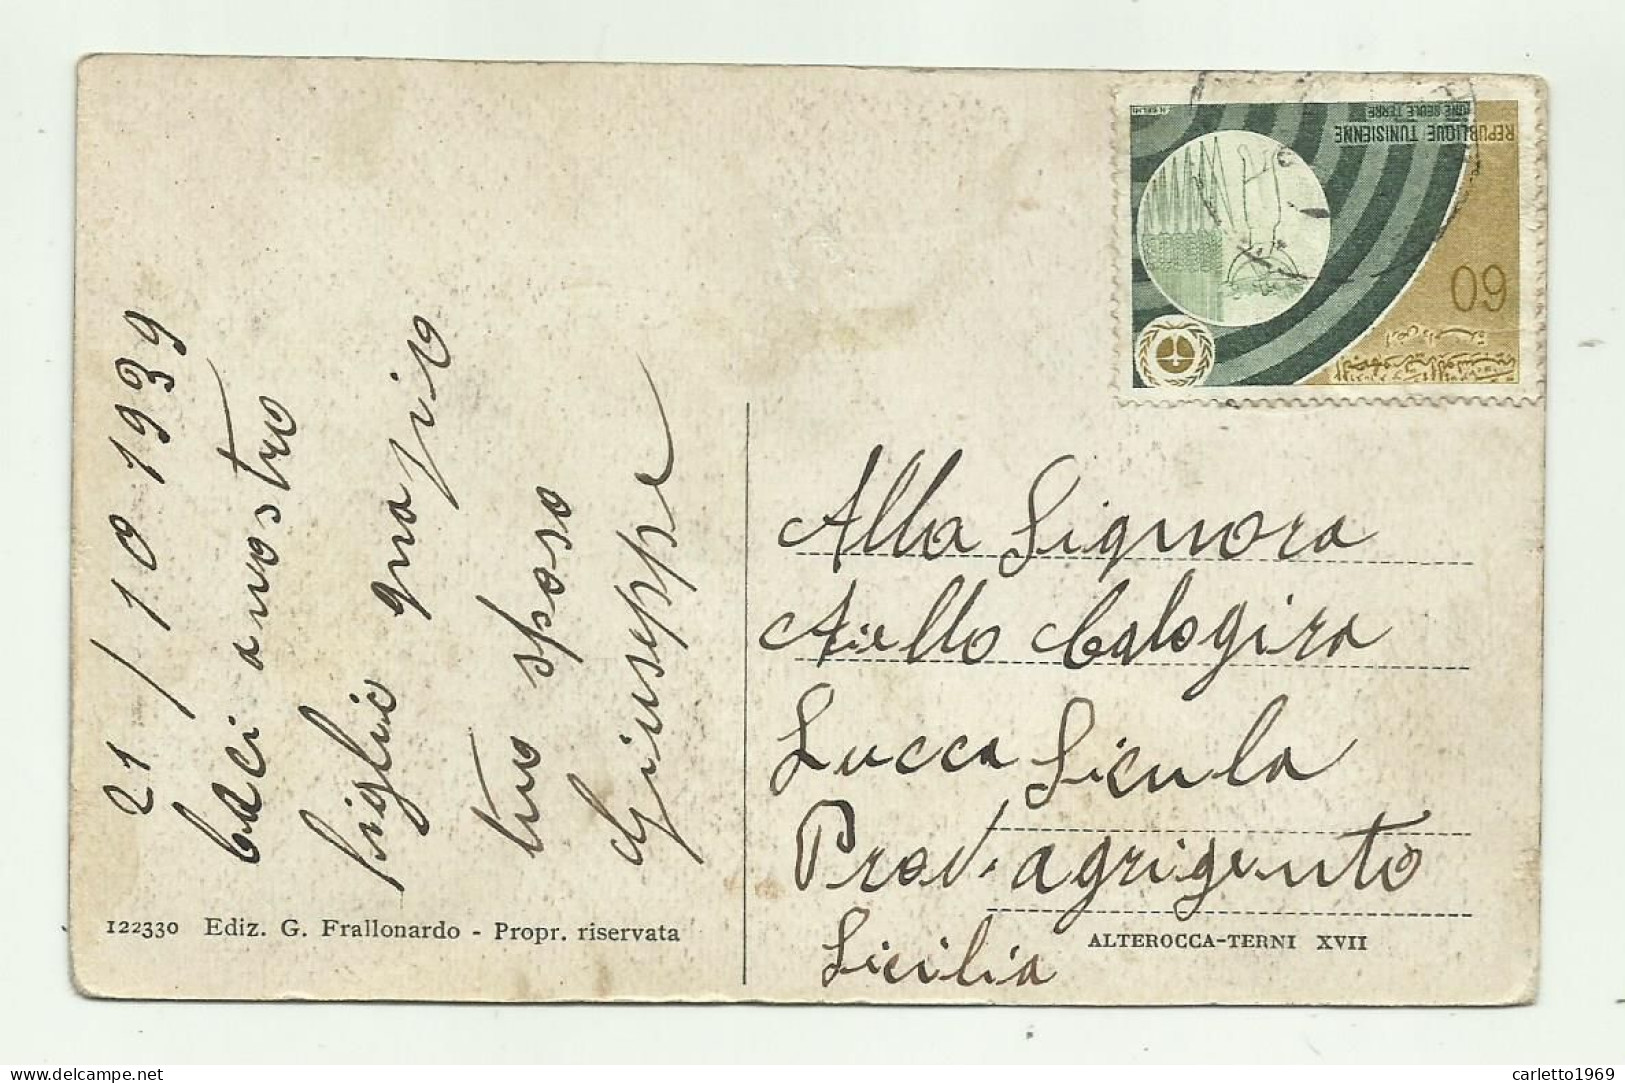 21/10 1939
baci a nostro
figlio
tuo sposo
Giuseppe
122330 Ediz. G. Frallonardo - Propr. riservata
REPUBLIQUE TUNISIENNE
UNE SEULE TERRE
60
Alla Signora
Aiello Calogira
Lucca Sicula
Prov. agrigento
Sicilia
ALTEROCCA-TERNI XVII
carletto1969
delcampe.net